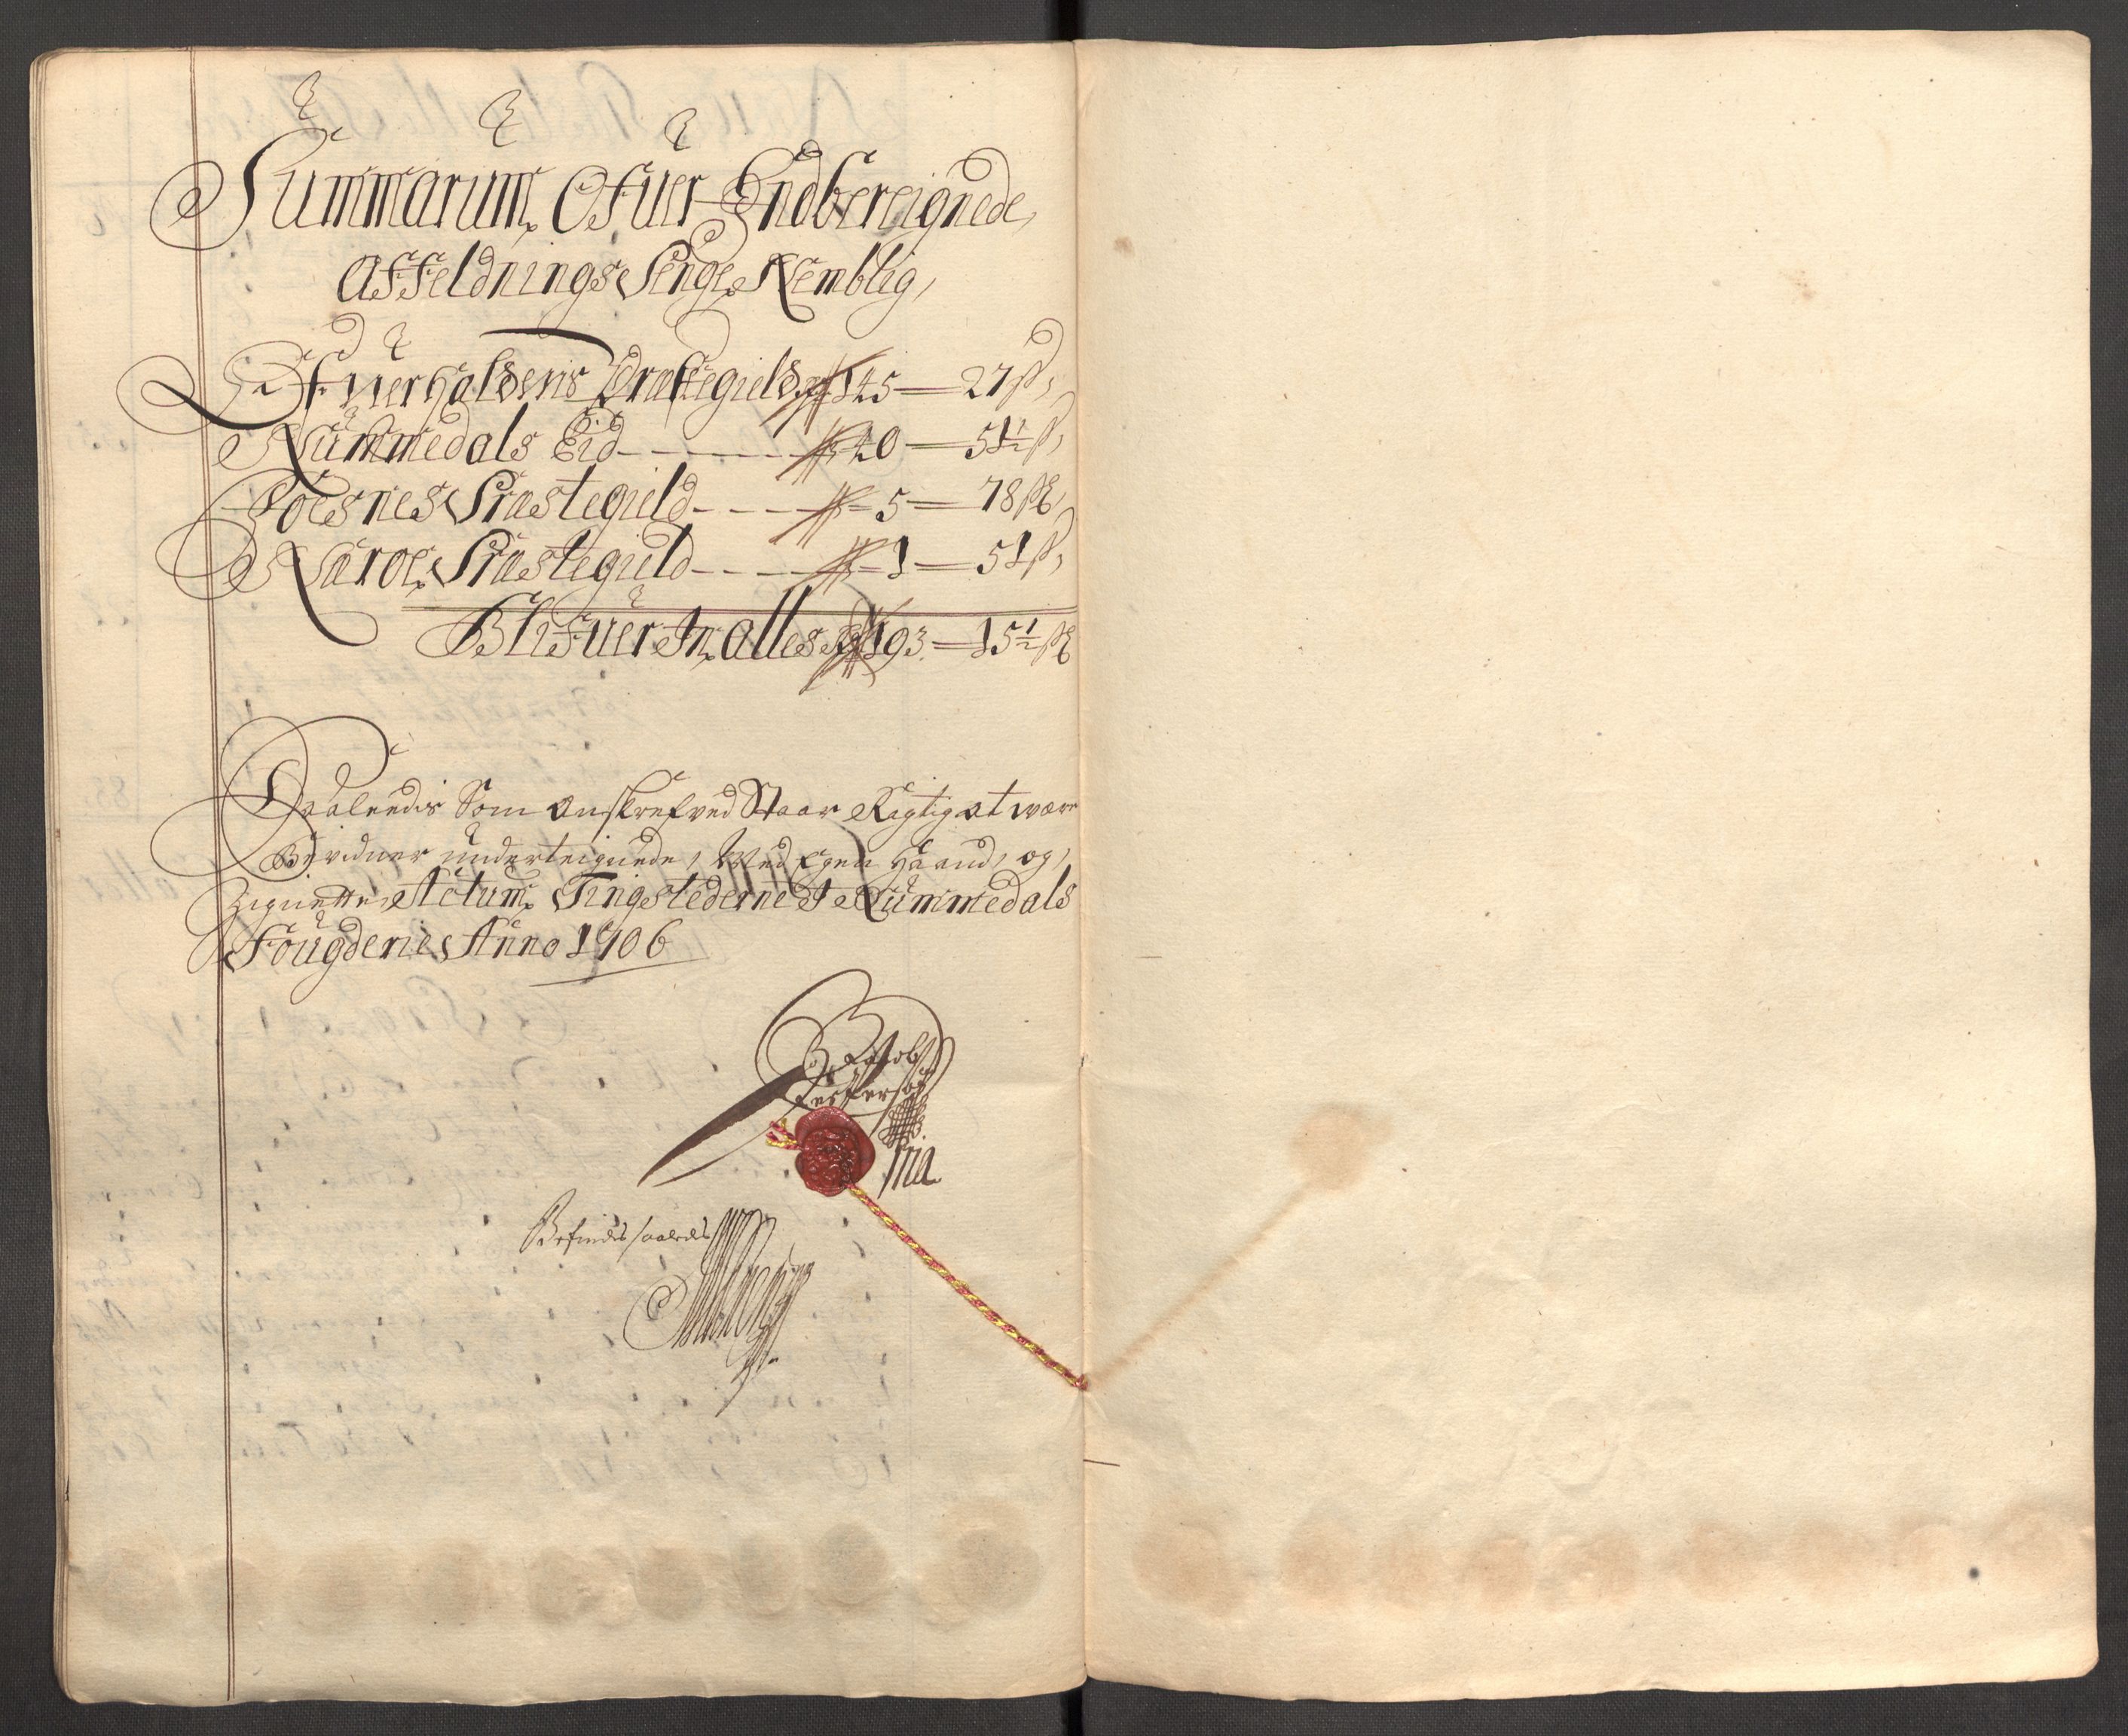 Summarum Ofuer Endbereignede,
Affeldnings Penge, Nemblig,
Ofuerhaldens Præstegield 145 — 27 ß,
Nummedals Eid — — — 40 — 51½ ß,
Foesnes Præstegield — — — 5 — 78 ß,
Nærøe Præstegield — — — 1 — 51 ß,
Blifuer In alles 193 — 15½ ß
Saaleedis Som Anskrefved Staar Rigtig at were
Bevidner underteignede, Med Egen Haand, og,
Zignette, Actum Tingstederne I Nummedals
Fougderie, Anno 1706
Jesperson
ma
Befindes saaledes